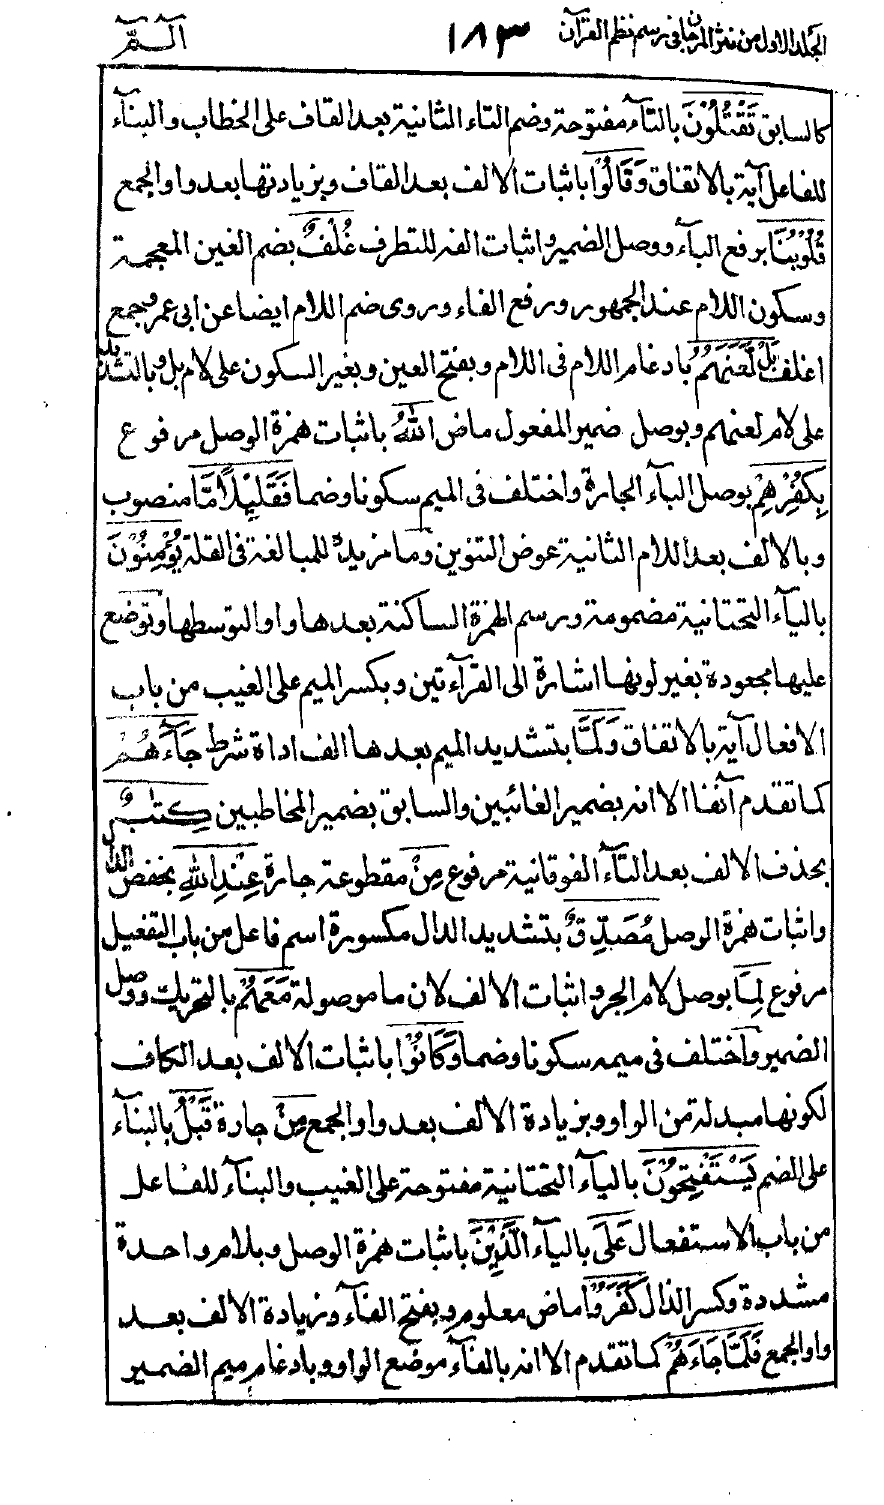 المجلد الاول من نثر المرجان فى رسم نظم القرآن ١٨٣ الٓـمّٓ
كالسابق تَقْتُلُوْنَ بالتآء مفتوحة وضم التاء الثانية بعد القاف على الخطاب والبنآء
للفاعل آية بالاتفاق وَقَالُوْا باثبات الالف بعد القاف وبزيادتها بعد واو الجمع
قُلُوْبُنَا برفع البآء ووصل الضمير واثبات الفه للتطرف غُلْفٌ بضم الغين المعجمة
وسكون اللام عند الجمهور ورفع الفاء وروى ضم اللام ايضا عن ابى عمرو جمع
اغلف بَلْ لَّعَنَهُمُ بادغام اللام فى اللام وبفتح العين وبغير السكون على لام بل وبالتشديد
على لام لعنهم وبوصل ضمير المفعول ماض اللهُ باثبات همزة الوصل مرفوع
بِكُفْرِهِمْ بوصل البآء الجارة واختلف فى الميم سكونا وضما فَقَلِيْلًا مَّا منصوب
وبالالف بعد اللام الثانية عوض التنوين وما مزيدة للمبالغة فى القلة يُؤْمِنُوْنَ
باليآء التحتانية مضمومة ورسم الهمزة الساكنة بعدها واوا لتوسطها وتوضع
عليها مجعودة بغير لونها اشارة الى القرآءتين وبكسر الميم على الغيب من باب
الافعال آية بالاتفاق وَلَمَّا بتشديد الميم بعدها الف اداة شرط جَآءَهُمْ
كما تقدم آنفا الا انه بضمير الغائبين والسابق بضمير المخاطبين كِتٰبٌ
بحذف الالف بعد التآء الفوقانية مرفوع مِنْ مقطوعة جارة عِنْدِ اللهِ بخفض الدال
واثبات همزة الوصل مُصَدِّقٌ بتشديد الدال مكسورة اسم فاعل من باب التفعيل
مرفوع لِمَا بوصل لام الجر واثبات الالف لان ما موصولة مَعَهُمْ بالتحريك ووصل
الضمير واختلف فى ميمه سكونا وضما وَكَانُوْا باثبات الالف بعد الكاف
لكونها مبدلة من الواو وبزيادة الالف بعد واو الجمع مِنْ جارة قَبْلُ بالبنآء
على الضم يَسْتَفْتِحُوْنَ باليآء التحتانية مفتوحة على الغيب والبنآء للفاعل
من باب الاستفعال عَلَى باليآء الَّذِيْنَ باثبات همزة الوصل وبلام واحدة
مشددة وكسر الذال كَفَرُوْا ماض معلوم وبفتح الفآء وزيادة الالف بعد
واو الجمع فَلَمَّا جَاءَهُمْ كما تقدم الا انه بالفآء موضع الواو وبادغام ميم الضمير